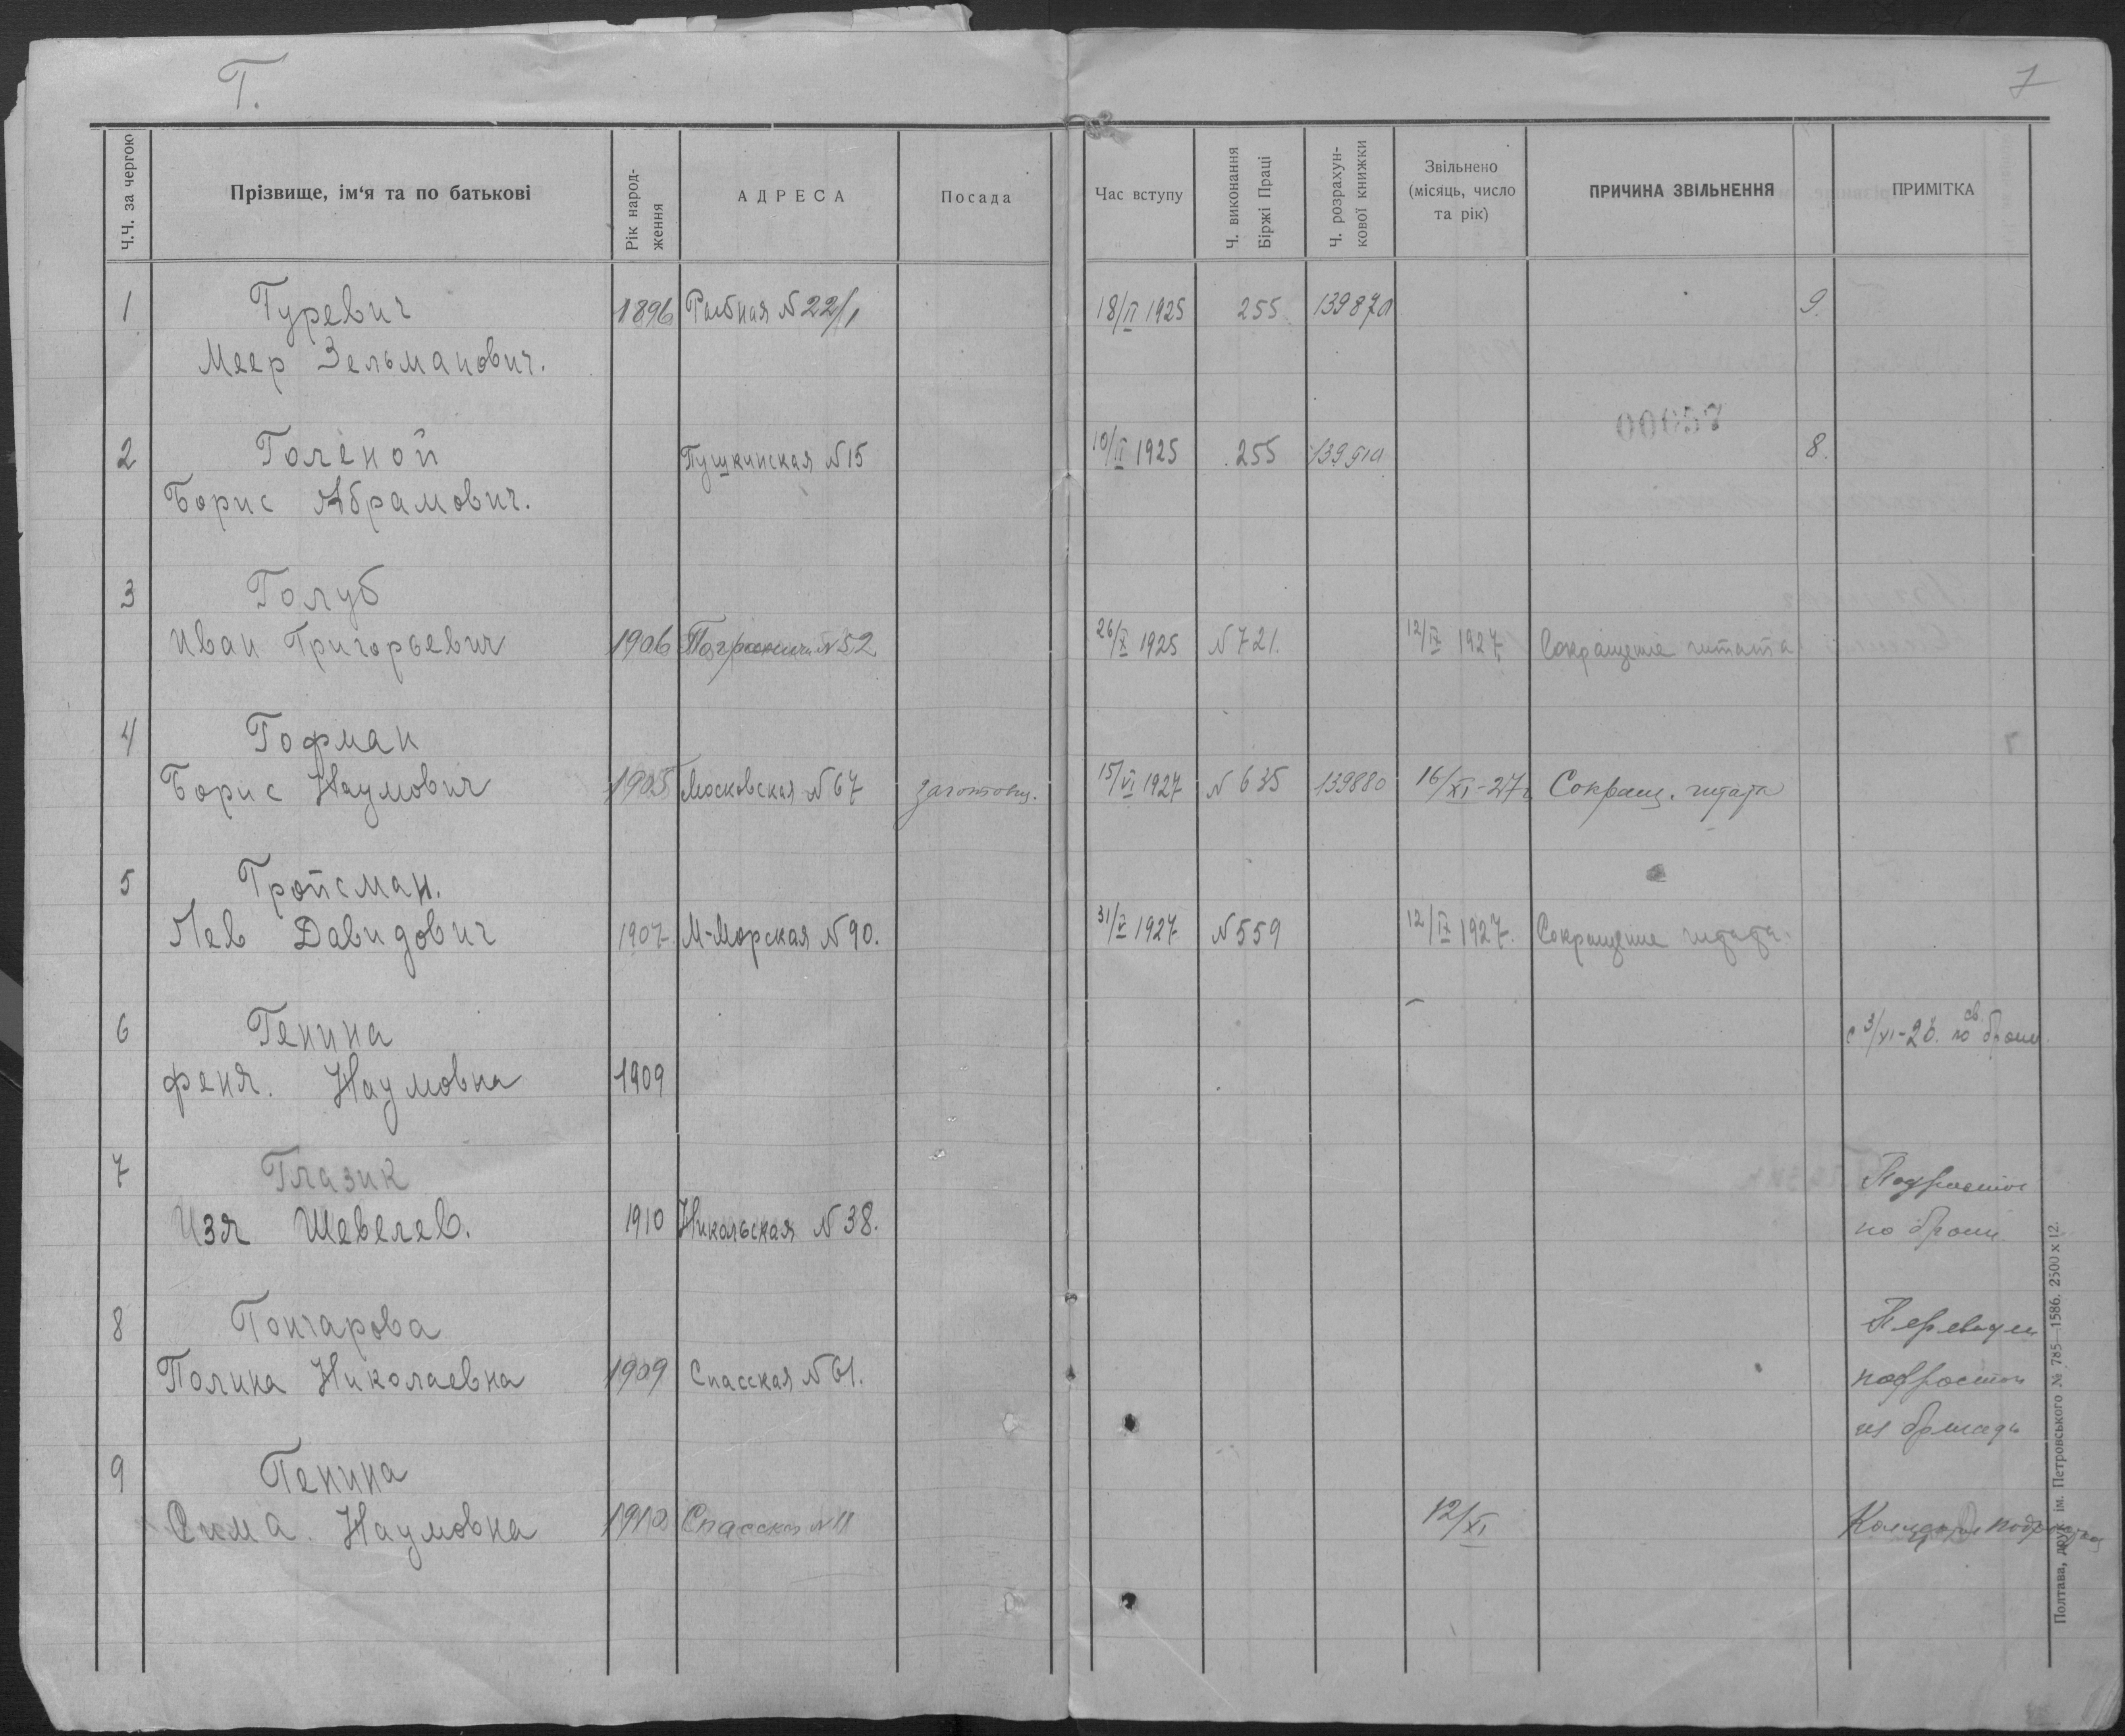 Г.
7
Ч.Ч. за чергою
Прізвище, ім'я та по батькові
Рік народ-
ження
АДРЕСА
Посада
Час вступу
Ч. виконання
Біржі Праці
Ч. розрахун-
кової книжки
Звільнено
(місяць, число
та рік)
ПРИЧИНА ЗВІЛЬНЕННЯ
ПРИМІТКА
1 Гуревич 1896 Рыбная №22/1 18/II 1925 255 9.
Меер Зельманович.
00057
2 Голеной Пушкинская №15 10/II 1925 255 8.
Борис Абрамович.
3 Голуб
Иван Григорьевич 1906 №52 26/X 1925 №721. 12/IX 1927 Сокращение штата
4 Гофман
Борис Наумович 1905 Московская №67 заготовщ. 15/VI 1927 №635 139880 16/XI-27г Сокращ. штата
5 Гройсман.
Лев Давидович 1907 М-Морская №90. 31/V 1927 №559 12/IX 1927. Сокращение штата.
6 Генина с 3/XI-28. по брони
Феня. Наумовна 1909
7 Глазик Подросток
Изя Шевелев. 1910 Никольская №38. по брони
8 Гончарова
Полина Николаевна 1909 Спасская №61. подросток
из
9 Генина
Сима. Наумовна 1910 Спасская №11 12/XI
Полтава, друк. ім. Петровського № 785—1586. 2500 х 12.